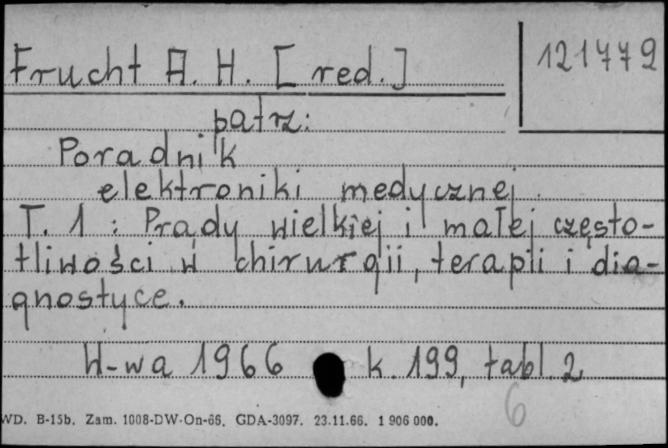 Frucht A. H. [red.]
121779
patrz:
Poradnik
elektroniki medycznej.
T. 1 : Prądy wielkiej i małej często-
tliwości w chirurgii, terapii i dia-
gnostyce.
W-wa 1966 k. 199, tabl. 2
6
WD. B-15b. Zam. 1008-DW-On-66. GDA-3097. 23.11.66. 1 906 000.